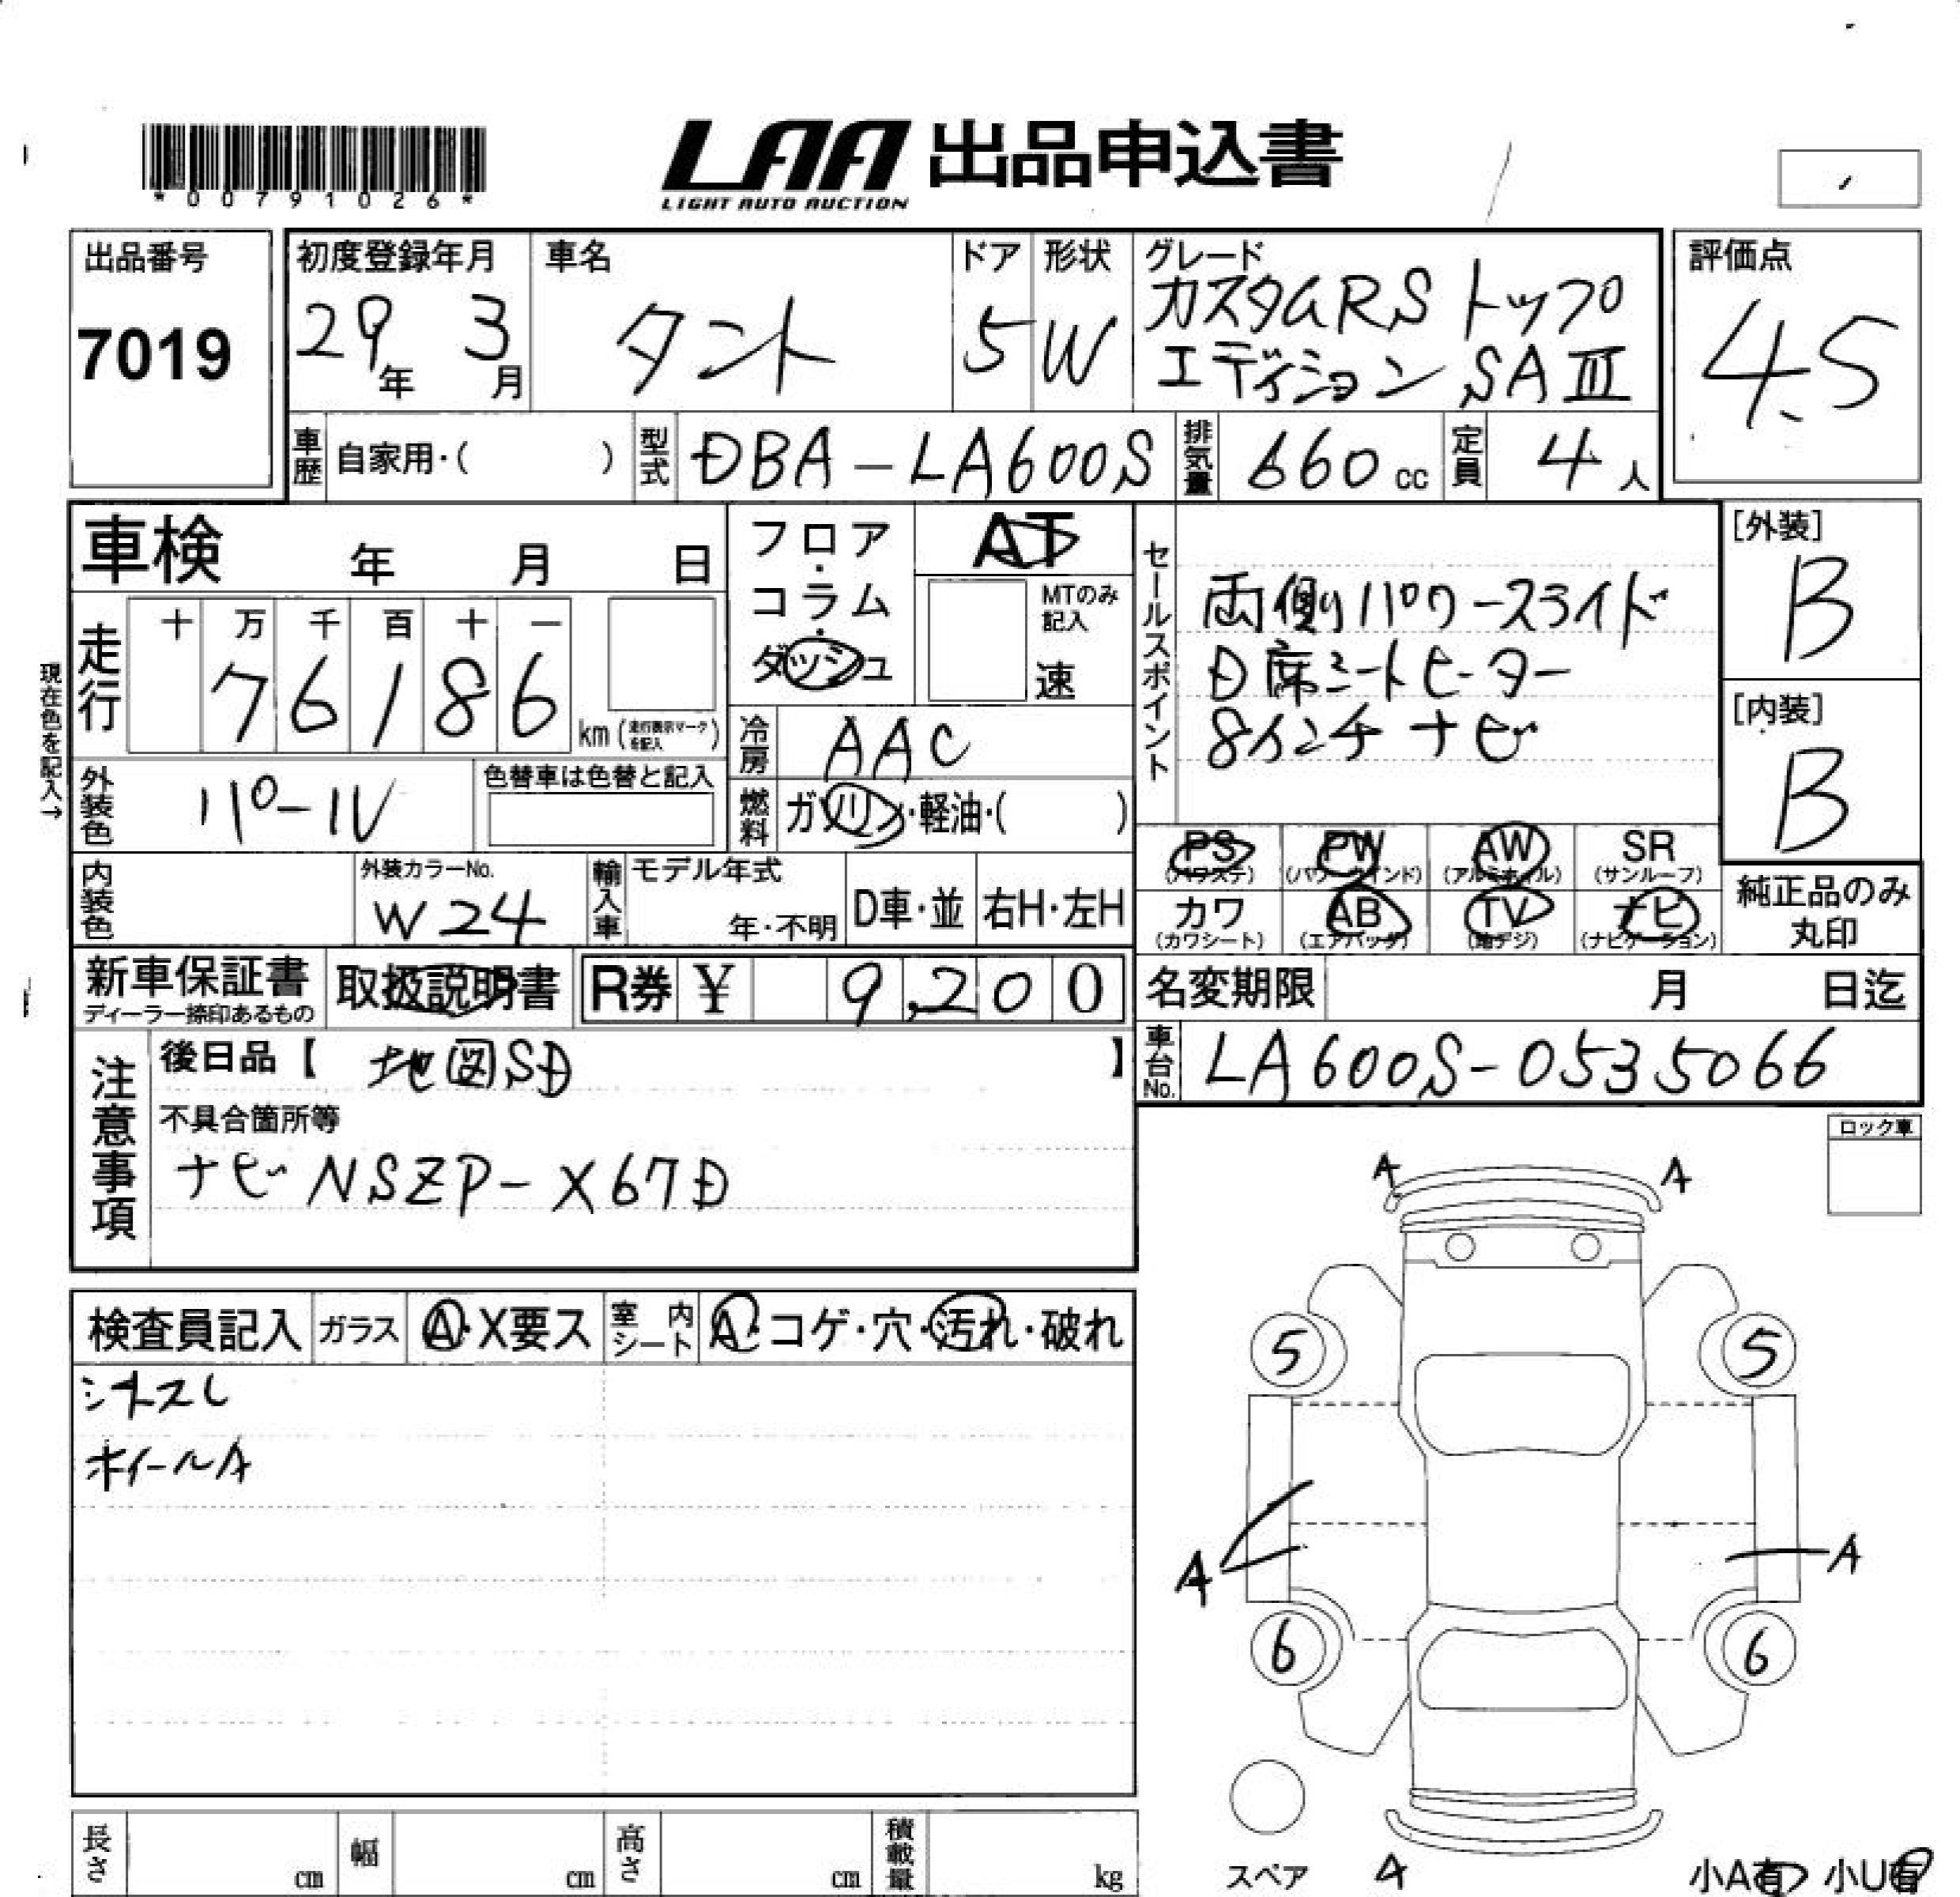 *00791026*
LAA 出品申込書
LIGHT AUTO AUCTION
出品番号
7019
初度登録年月
29年 3月
車名
タント
ドア
5
形状
W
グレード
カスタムRS トップ
エディション SAⅢ
評価点
4.5
車歴
自家用・( )
型式
DBA-LA600S
排気量
660cc
定員
4人
車検 年 月 日
フロア・コラム・ダッシュ
AT
MTのみ記入
速
現在色を記入→
走行
十 万 千 百 十 一
7 6 1 8 6
km (走行表示マークを記入)
冷房
AAC
外装色
パール
色替車は色替と記入
燃料
ガソリン・軽油・( )
内装色
外装カラーNo.
W24
輸入車
モデル年式
年・不明
D車・並
右H・左H
セールスポイント
両側パワースライド
D席シートヒーター
8インチナビ
[外装]
B
[内装]
B
PS (パワステ)
PW (パワーウインド)
AW (アルミホイル)
SR (サンルーフ)
カワ (カワシート)
AB (エアバッグ)
TV (地デジ)
ナビ (ナビゲーション)
純正品のみ
丸印
新車保証書
ディーラー捺印あるもの
取扱説明書
R券 ¥ 9,200
名変期限 月 日迄
車台No.
LA600S-0535066
注意事項
後日品【 地図SD 】
不具合箇所等
ナビ NSZP-X67D
ロック車
検査員記入
ガラス
A・X要ス
室内シート
A・コゲ・穴・汚れ・破れ
ホイールA
A A
5 5
A A
6 6
スペア
A
小A有 小U有
長さ cm
幅 cm
高さ cm
積載量 kg